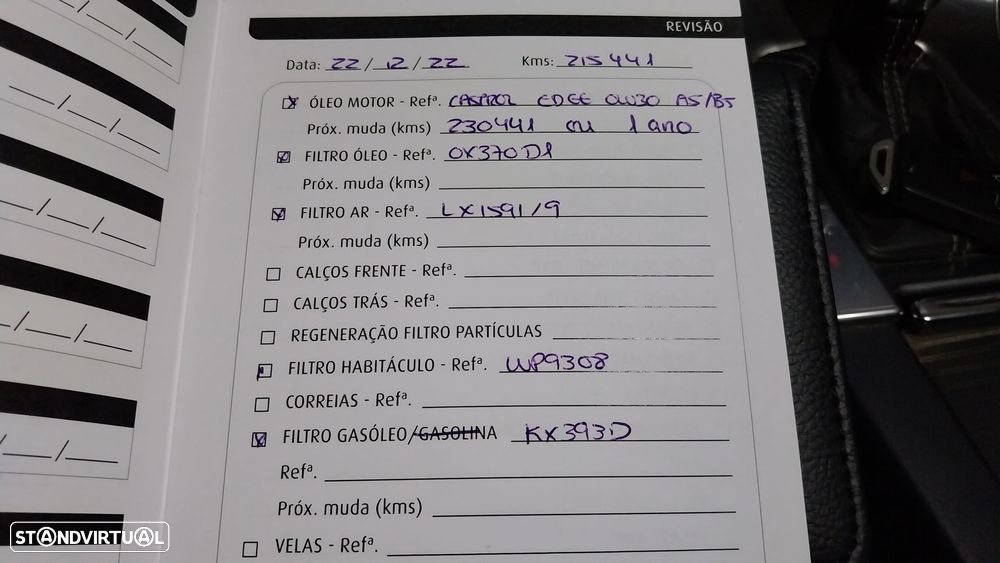 REVISÃO
Data: 22/12/22 Kms: 215441
ÓLEO MOTOR - Refª. CASTROL EDGE 0W30 A5/B5
Próx. muda (kms) 230441 ou 1 ano
FILTRO ÓLEO - Refª. OX370D1
Próx. muda (kms)
FILTRO AR - Refª. LX1591/9
Próx. muda (kms)
CALÇOS FRENTE - Refª.
CALÇOS TRÁS - Refª.
REGENERAÇÃO FILTRO PARTÍCULAS
FILTRO HABITÁCULO - Refª. WP9308
CORREIAS - Refª.
FILTRO GASÓLEO/GASOLINA KX393D
Refª.
Próx. muda (kms)
VELAS - Refª.
STANDVIRTUAL